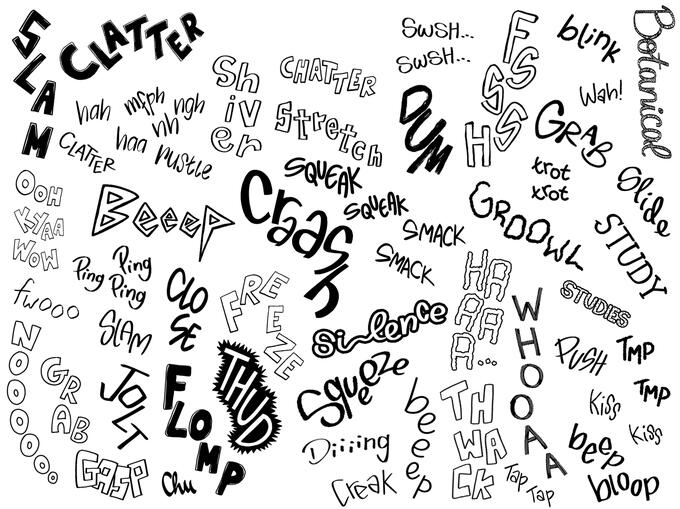 SLAM
CLATTER
hah
mfph
ngh
nh
haa
rustle
CLATTER
Sh
iv
er
CHATTER
Stretch
SWSH...
SWSH...
FSSSH
blink
Botanical
Wah!
DUM
GRAB
trot
xsot
Slide
OOH
KYAA
WOW
Beeep
SQUEAK
SQUEAK
Craaash
SMACK
SMACK
GROOWL
STUDY
STUDIES
Ping
Ping
Ping
fwooo
SLAM
CLO
SE
FREEZE
Silence
HA
AA
A...
WHOOAA
PUSH
TMP
TMP
Kiss
Kiss
NOOOOOO...
GR
AB
JOLT
FLOMP
THUD
Squeeeze
Diiiing
beeep
THWACK
Tap Tap
beep
bloop
GASP
Chu
Creak